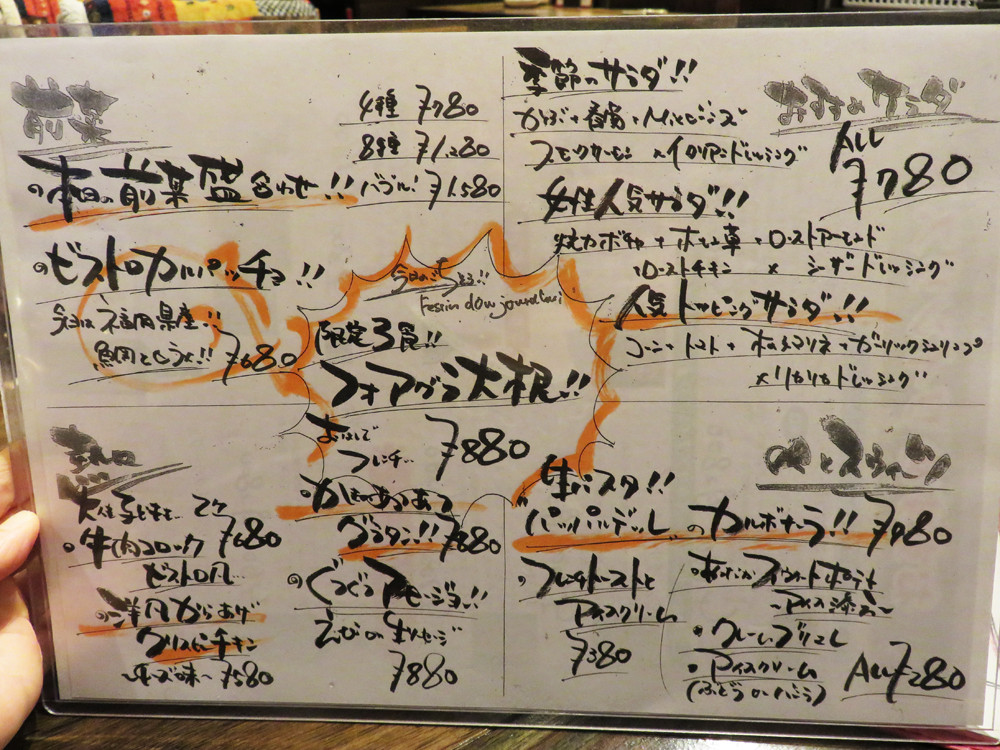 前菜
4種 ¥780
8種 ¥1,280
本日の前菜盛合わせ!! バブル! ¥1,580
ビストロカルパッチョ!!
今日は福岡県産!!
¥680
おすすめサラダ
ALL ¥780
季節のサラダ!!
スモークサーモン × イタリアンドレッシング
女性人気サラダ!!
焼カボチャ + ホーレン草 + ローストアーモンド
+ ローストチキン × シーザードレッシング
人気トッピングサラダ!!
コーン + トマト + + ガーリックシュリンプ
×
今日のごちそう!!
限定3食!!
フォアグラ大根!!
おはしで
フレンチ… ¥880
大人も子どもも… 2ケ
牛肉コロッケ ¥680
ビストロ風…
洋風からあげ
クリスピーチキン
〜チーズ味〜 ¥580
グラタン!! ¥880
ぐつぐつアヒージョ!!
えびの
¥880
〆とスウィーツ
生パスタ!!
パッパルデッレのカルボナーラ!! ¥980
フレンチトーストと
アイスクリーム
¥380
あったかスイートポテト
〜アイス添え〜
クレームブリュレ
アイスクリーム
(ぶどう or バニラ)
ALL ¥280